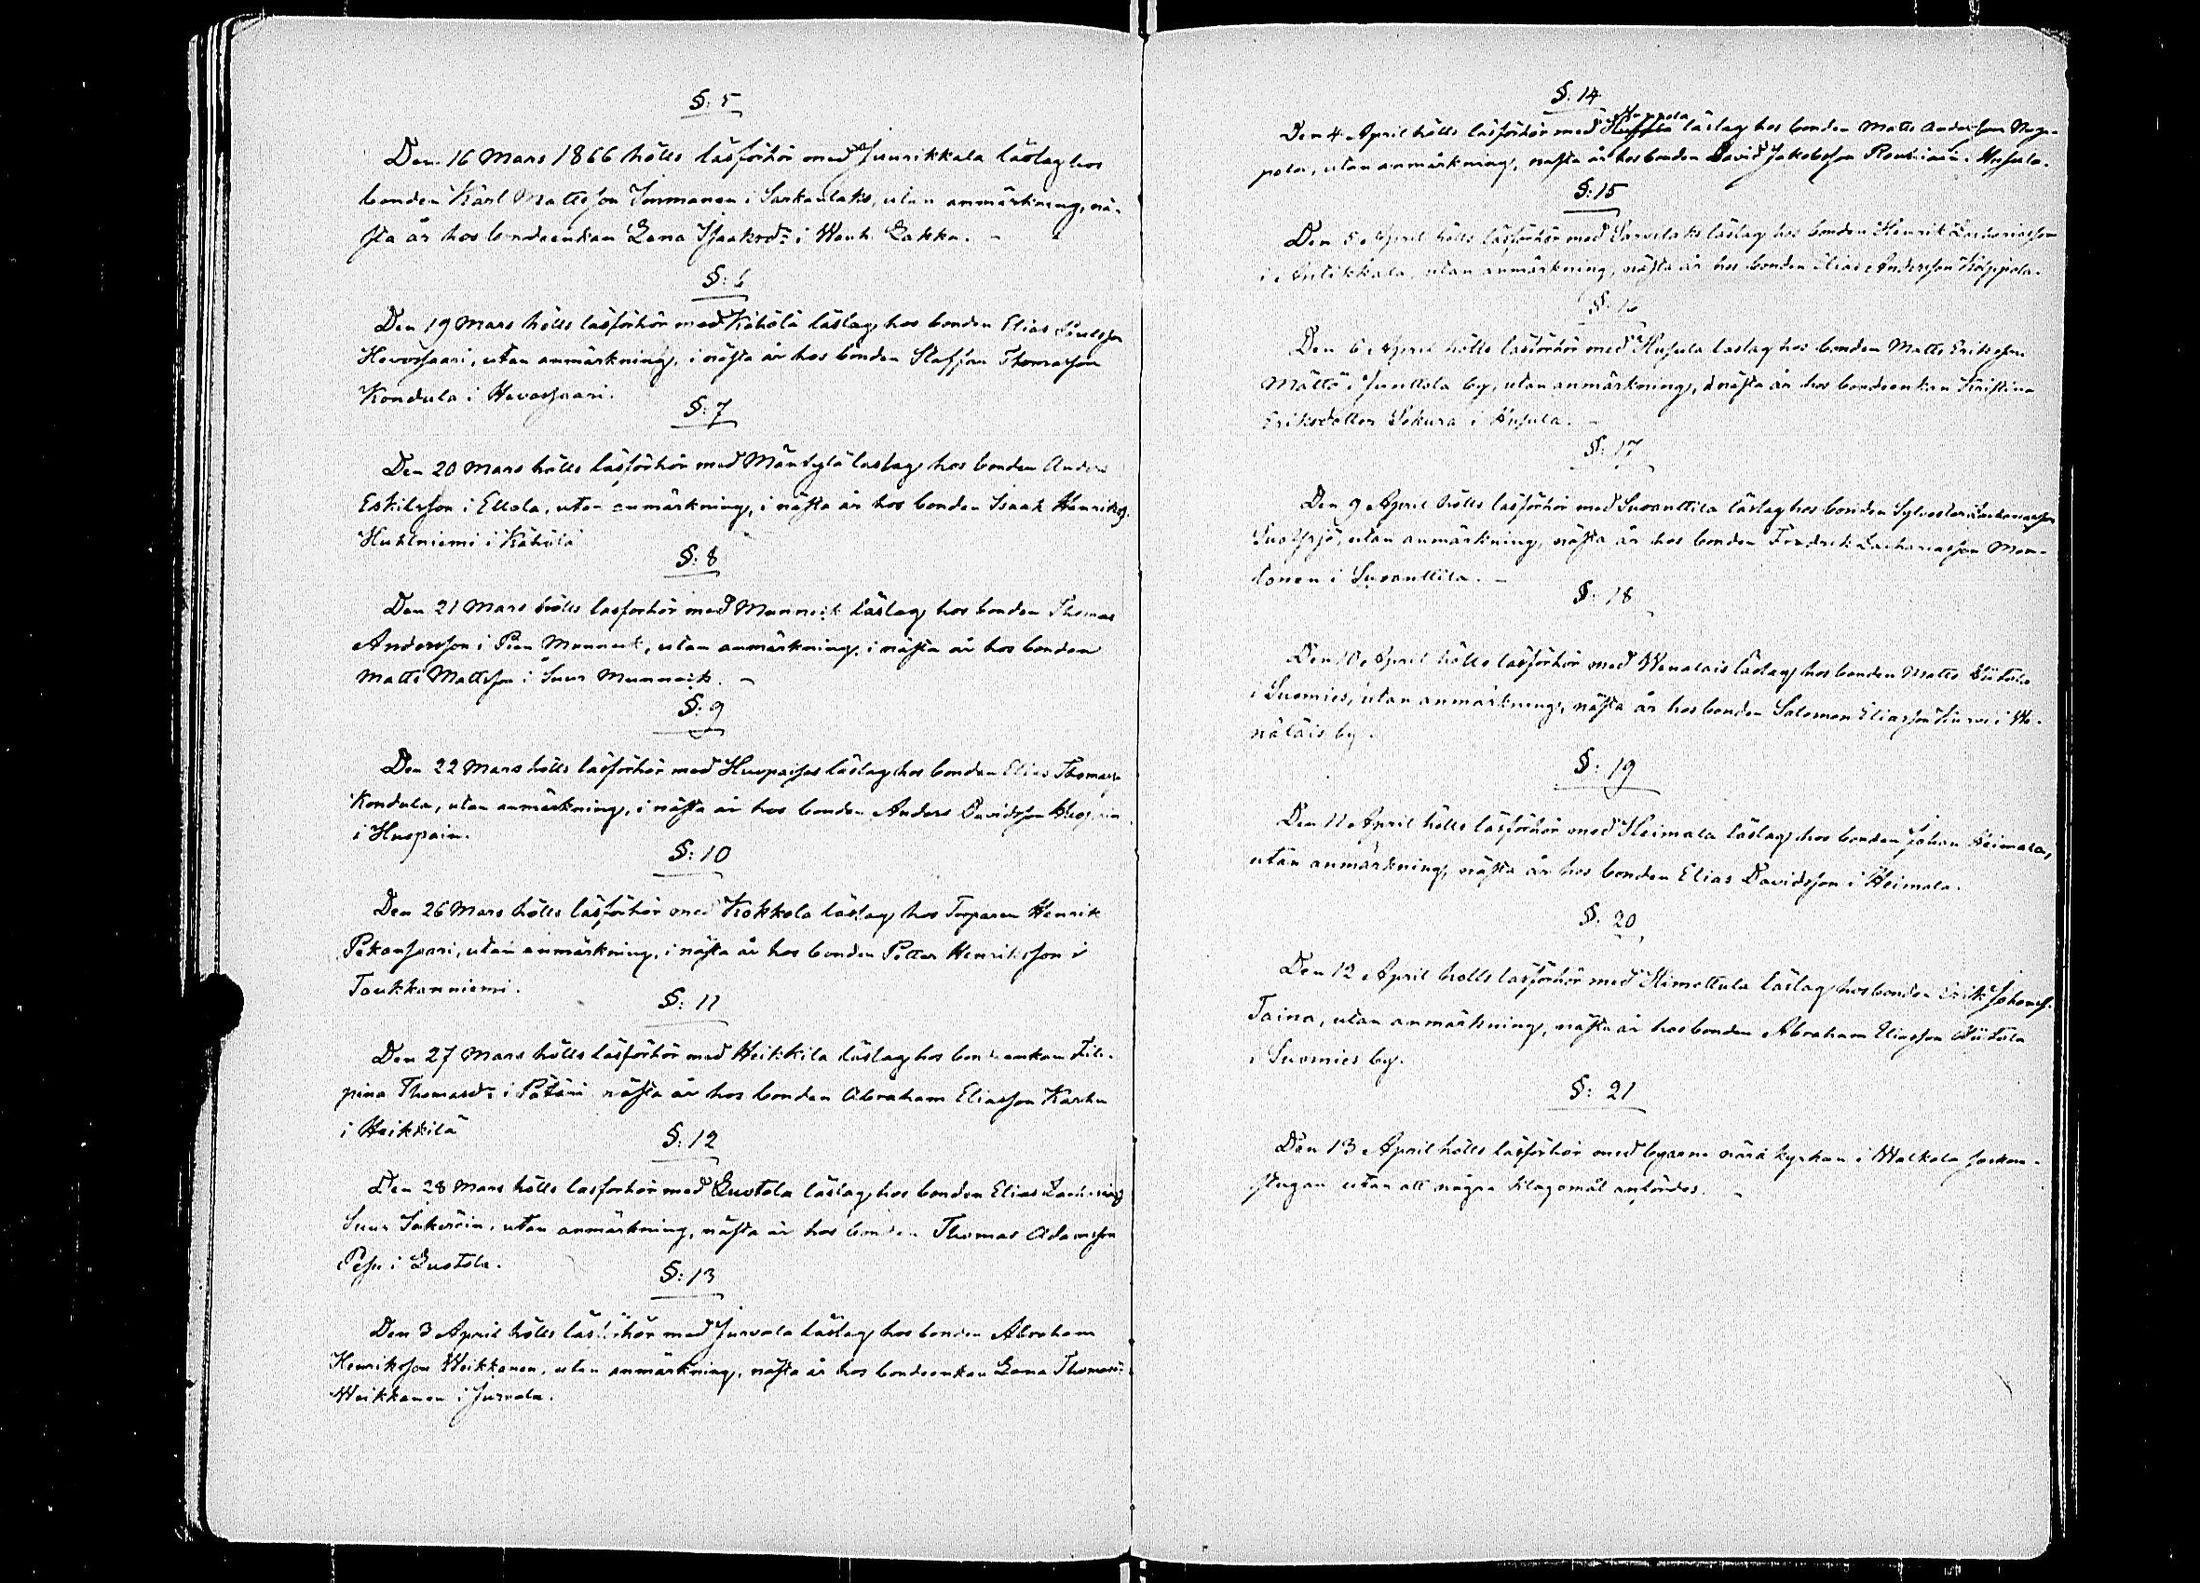 §: 5
Den 16 Mars 1866 hölls läsförhör med Juurikkala läslag hos
bonden Karl Mattsson Inrmanen i Sarkaulaks, utan anmärkning, nä-
sta år hos bondeenkan Lena Isaaksdr i Wanh. Lakka. -
§: 6
Den 19 Mars hölls läsförhör med Kähölä läslag, hos bonden Elias
Hevossaari, utan anmärkning, i nästa år hos bonden Staffan Thomasson
Kondula i Hevossaari.
§: 7
Den 20 Mars hölls läsförhör med Mäntylä läslag hos bonden Anders
Eskilsson i Ellola, utan anmärkning, i nästa år hos bonden Isaak Henrikss.
Huhlniemi i Kähölä
§: 8
Den 21 Mars hölls läsförhör med Munneck läslag hos bonden Thomas
Andersson i Pien Munneck, utan anmärkning i nästa år hos bonden
Matts Mattsson i Suur Munneck. -
§: 9
Den 22 Mars hölls läsförhör med Huopaises läslag hos bonden Elias Thomass.
Kondula, utan anmärkning, i nästa år hos bonden Anders Davidsson
i Huopain.
§: 10
Den 26 Mars hölls läsförhör med Kokkola läslag hos Torparen Henrik
Pekansaari, utan anmärkning, i nästa år hos bonden Petter Henriksson i
Toukkanniemi.
§: 11
Den 27 Mars hölls läsförhör med Heikkila läslag hos bondeenkan Fili-
pina Thomasdr i Pätäri nästa år hos bonden Abraham Eliasson Karhu
i Heikkilä
§: 12
Den 28 Mars hölls läsförhör med Kustola läslag, hos bonden Elias
Suur utan anmärkning, nästa år hos bonden Thomas Adamsson
Pesu i Kustola.
§: 13
Den 3 April hölls läsförhör med Jurvala läslag hos bonden Abraham
Henriksson Weikkanen, utan anmärkning, nästa år hos bondeenkan Lena Thomasdr
Weikkanen i Jurvala.
§: 14
Den 4 April hölls läsförhör med Nuppola läslag hos bonden Matts Andersson Nup-
pola, utan anmärkning, nästa år hos bonden David Jakobsson Rontiain i Husula.
§: 15
Den 5 April hölls läsförhör med läslag hos bonden Henrik Zachariasson
i Anttikkala, utan anmärkning, nästa år hos bonden Elias Andersson Kolppola.
§: 16
Den 6 April hölls läsförhör med Husula läslag hos bonden Matts Eriksson
Mättö i Junttola by, utan anmärkning, i nästa år hos bondeenkan Kristina
Eriksdotter Sokura i Husula. -
§: 17
Den 9 April hölls läsförhör med Suvanttila läslag hos bonden Sylvester Zachariasson
utan anmärkning, nästa år hos bonden Fredrik Zachariasson Mon-
tonen i Suvanttila. -
§: 18
Den 10 April hölls läsförhör med Wenalais läslag hos bonden Matts Hütula
i Suomies, utan anmärkning, nästa år hos bonden Salomon Eliasson i We-
näläis by.
§: 19
Den 11 April hölls läsförhör med Heimala läslag hos bonden Johan Heimala,
utan anmärkning, nästa år hos bonden Elias Davidsson i Heimala.
§: 20
Den 12 April hölls läsförhör med Himottula läslag hos bonden Erik Johanss.
Taina, utan anmärkning, nästa år hos bonden Abraham Eliasson Hütula
i Suomies by.
§: 21
Den 13 April hölls läsförhör med byarne nära kyrkan i Walkola socken-
stugan utan att några klagomål anfördes. -